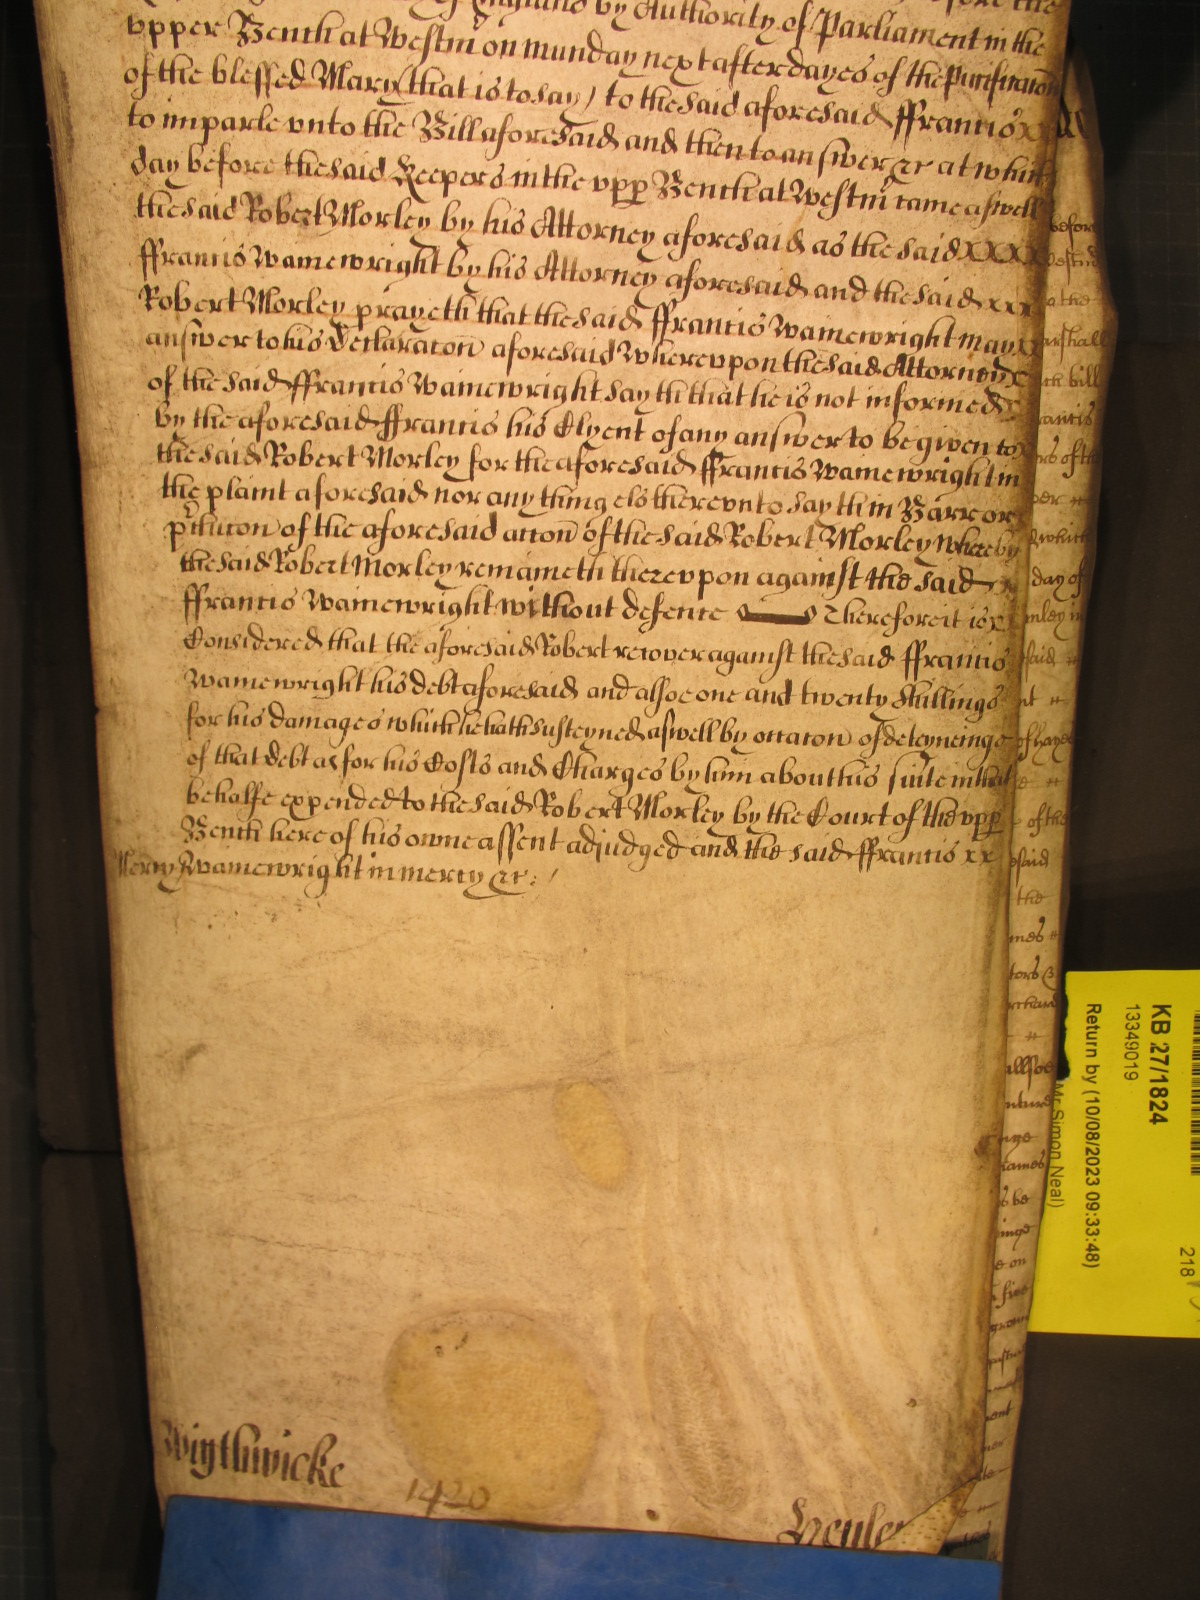 of England by Authority of Parliament in the
vpper Bench at Westm̃ on munday next after dayes of the Purificacon
of the blessed Mary (that is to say) to the said aforesaid ffrancis xx
to imparle vnto the Bill aforesaid and then to answer &c at which
day before the said Keepers in the vpp Bench at Westm̃ came aswell
the said Robert Morley by his Attorney aforesaid as the said XXXX
ffrancis Wainewright by his Attorney aforesaid and the said xxx
Robert Morley prayeth that the said ffrancis Wainewright may x
answer to his Declaracon aforesaid Wherevpon the said Attorney x
of the said ffrancis Wainewright sayth that he is not informed x
by the aforesaid ffrancis his Clyent of any answer to be given to
the said Robert Morley for the aforesaid ffrancis Wainewright in
the plaint aforesaid nor any thing els therevnto sayth in Barr or
p̃clucon of the aforesaid accon of the said Robert Morley Whereby
the said Robert Morley remaineth therevpon against the said x
ffrancis Wainewright without defence Therefore it is x
Considered that the aforesaid Robert recover against the said ffrancis
Wainewright his debt aforesaid and alsoe one and twenty shillings
for his damages which he hath susteyned aswell by occacon of deteyneinge
of that debt as for his Costs and Charges by him about his suite in that
behalfe expended to the said Robert Morley by the Court of the vpp
Bench here of his owne assent adjudged and the said ffrancis xx
Mercy Wainewright in mercy &c:/
Wigthwicke
1420
Henle
KB 27/1824
13349019
Return by (10/08/2023 09:33:48)
Mr Simon Neal)
218